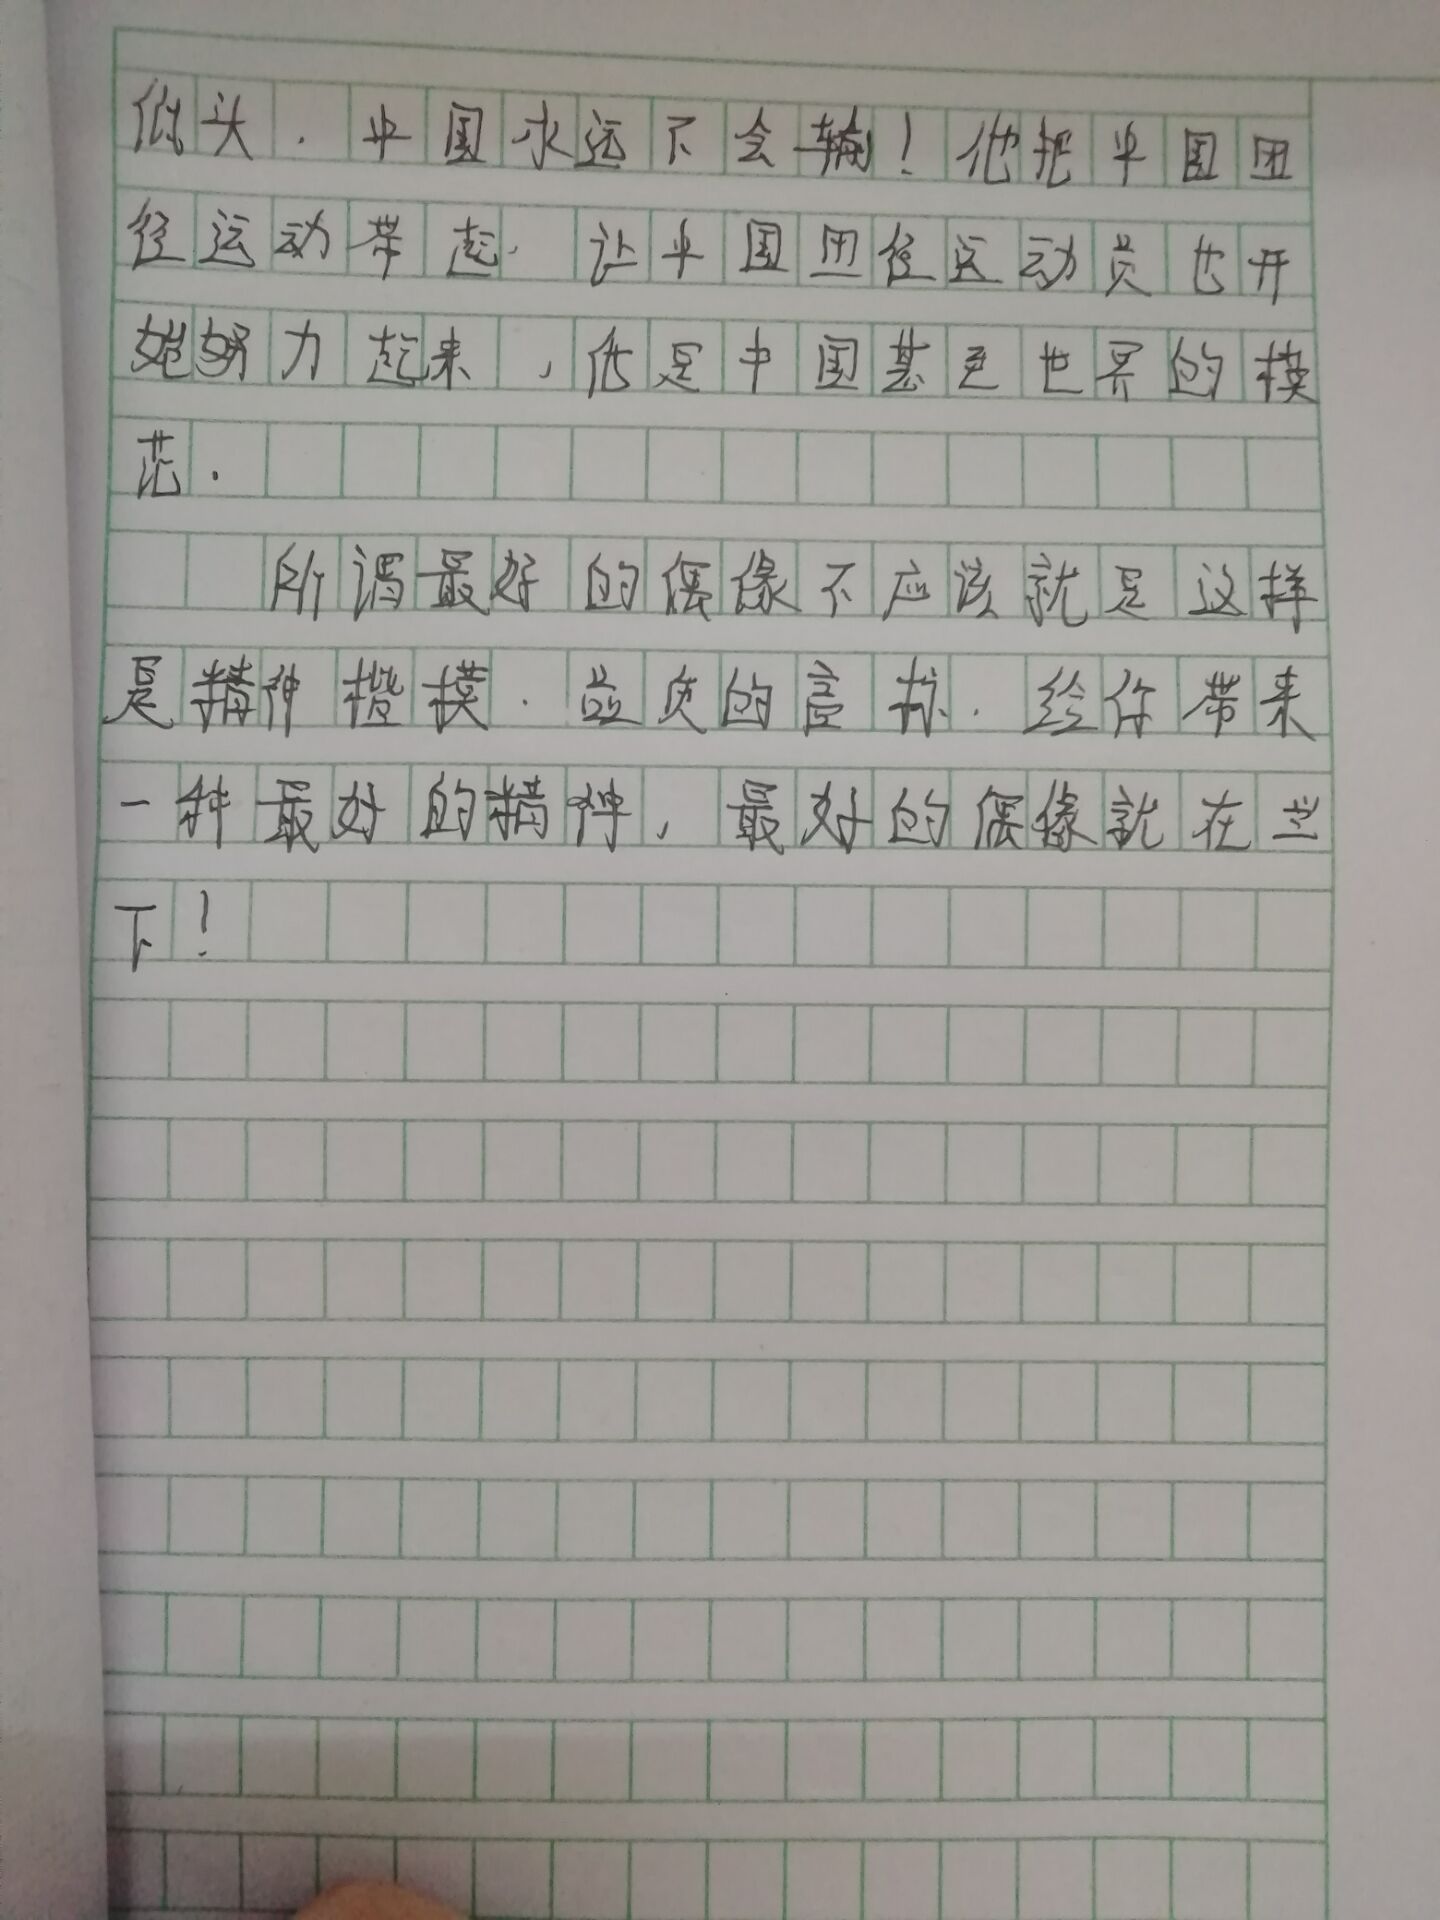 低头，中国永远不会输！他把中国田
径运动带起，让中国田径运动员也开
始努力起来，他是中国甚至世界的模
范．
所谓最好的偶像不应该就是这样
是精神楷模．益友的言称．给你带来
一种最好的精神，最好的偶像就在当
下！